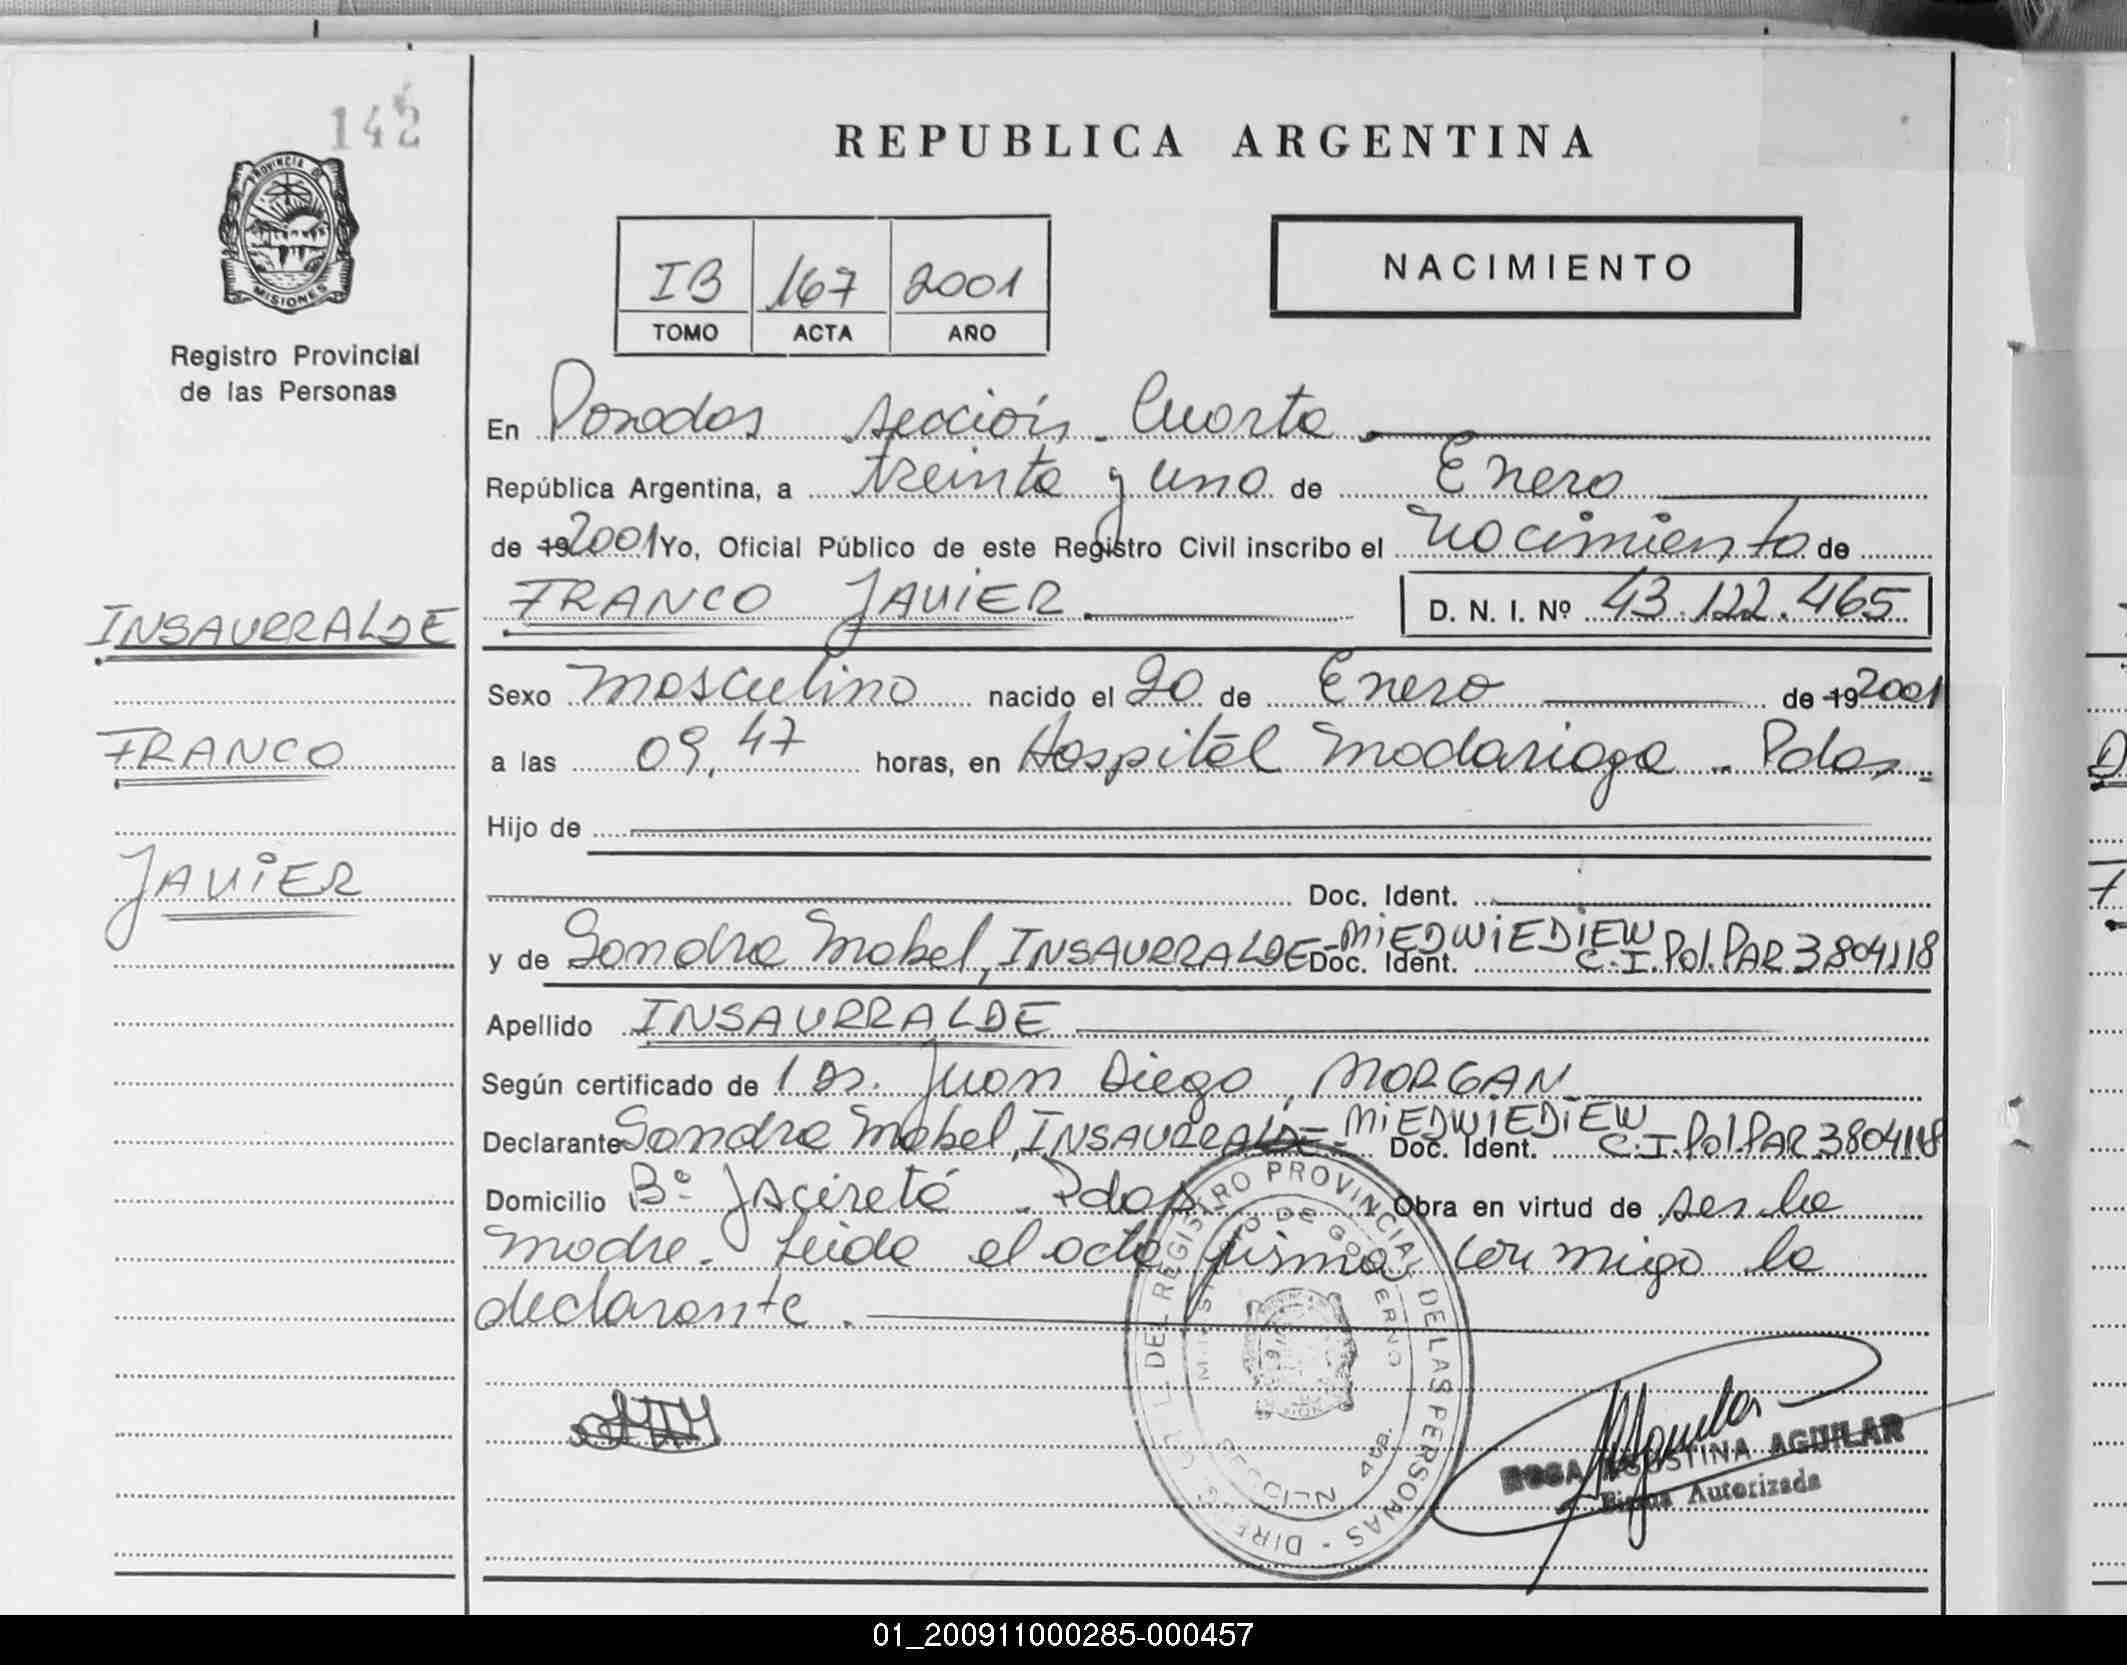 142
PROVINCIA DE
MISIONES
Registro Provincial
de las Personas
INSAURRALDE
FRANCO
JAVIER
REPUBLICA ARGENTINA
IB 167 2001
TOMO ACTA AÑO
NACIMIENTO
En Posadas sección Cuarta
República Argentina, a treinta y uno de Enero
de 19 2001 Yo, Oficial Público de este Registro Civil inscribo el nacimiento de
FRANCO JAVIER. D. N. I. Nº 43.122.465
Sexo masculino nacido el 20 de Enero de 19 2001
a las 09,47 horas, en Hospital Madariaga - Pdas -
Hijo de
Doc. Ident.
y de Sandra Mabel, INSAURRALDE - MIEDWIEDIEW Doc. Ident. C.I. Pol. PAR 3804118
Apellido INSAURRALDE
Según certificado de l Dr. Juan Diego, MORGAN
Declarante Sandra Mabel, INSAURRALDE - MIEDWIEDIEW Doc. Ident. C.I. Pol. PAR 3804118
Domicilio Bº Jacireta - Pdas Obra en virtud de ser la
madre. Leida el acta firma conmigo la
declarante.
DEL REGISTRO PROVINCIAL DE LAS PERSONAS -
DE GOBIERNO
ROSA AGUSTINA AGUILAR
Firma Autorizada
01_200911000285-000457